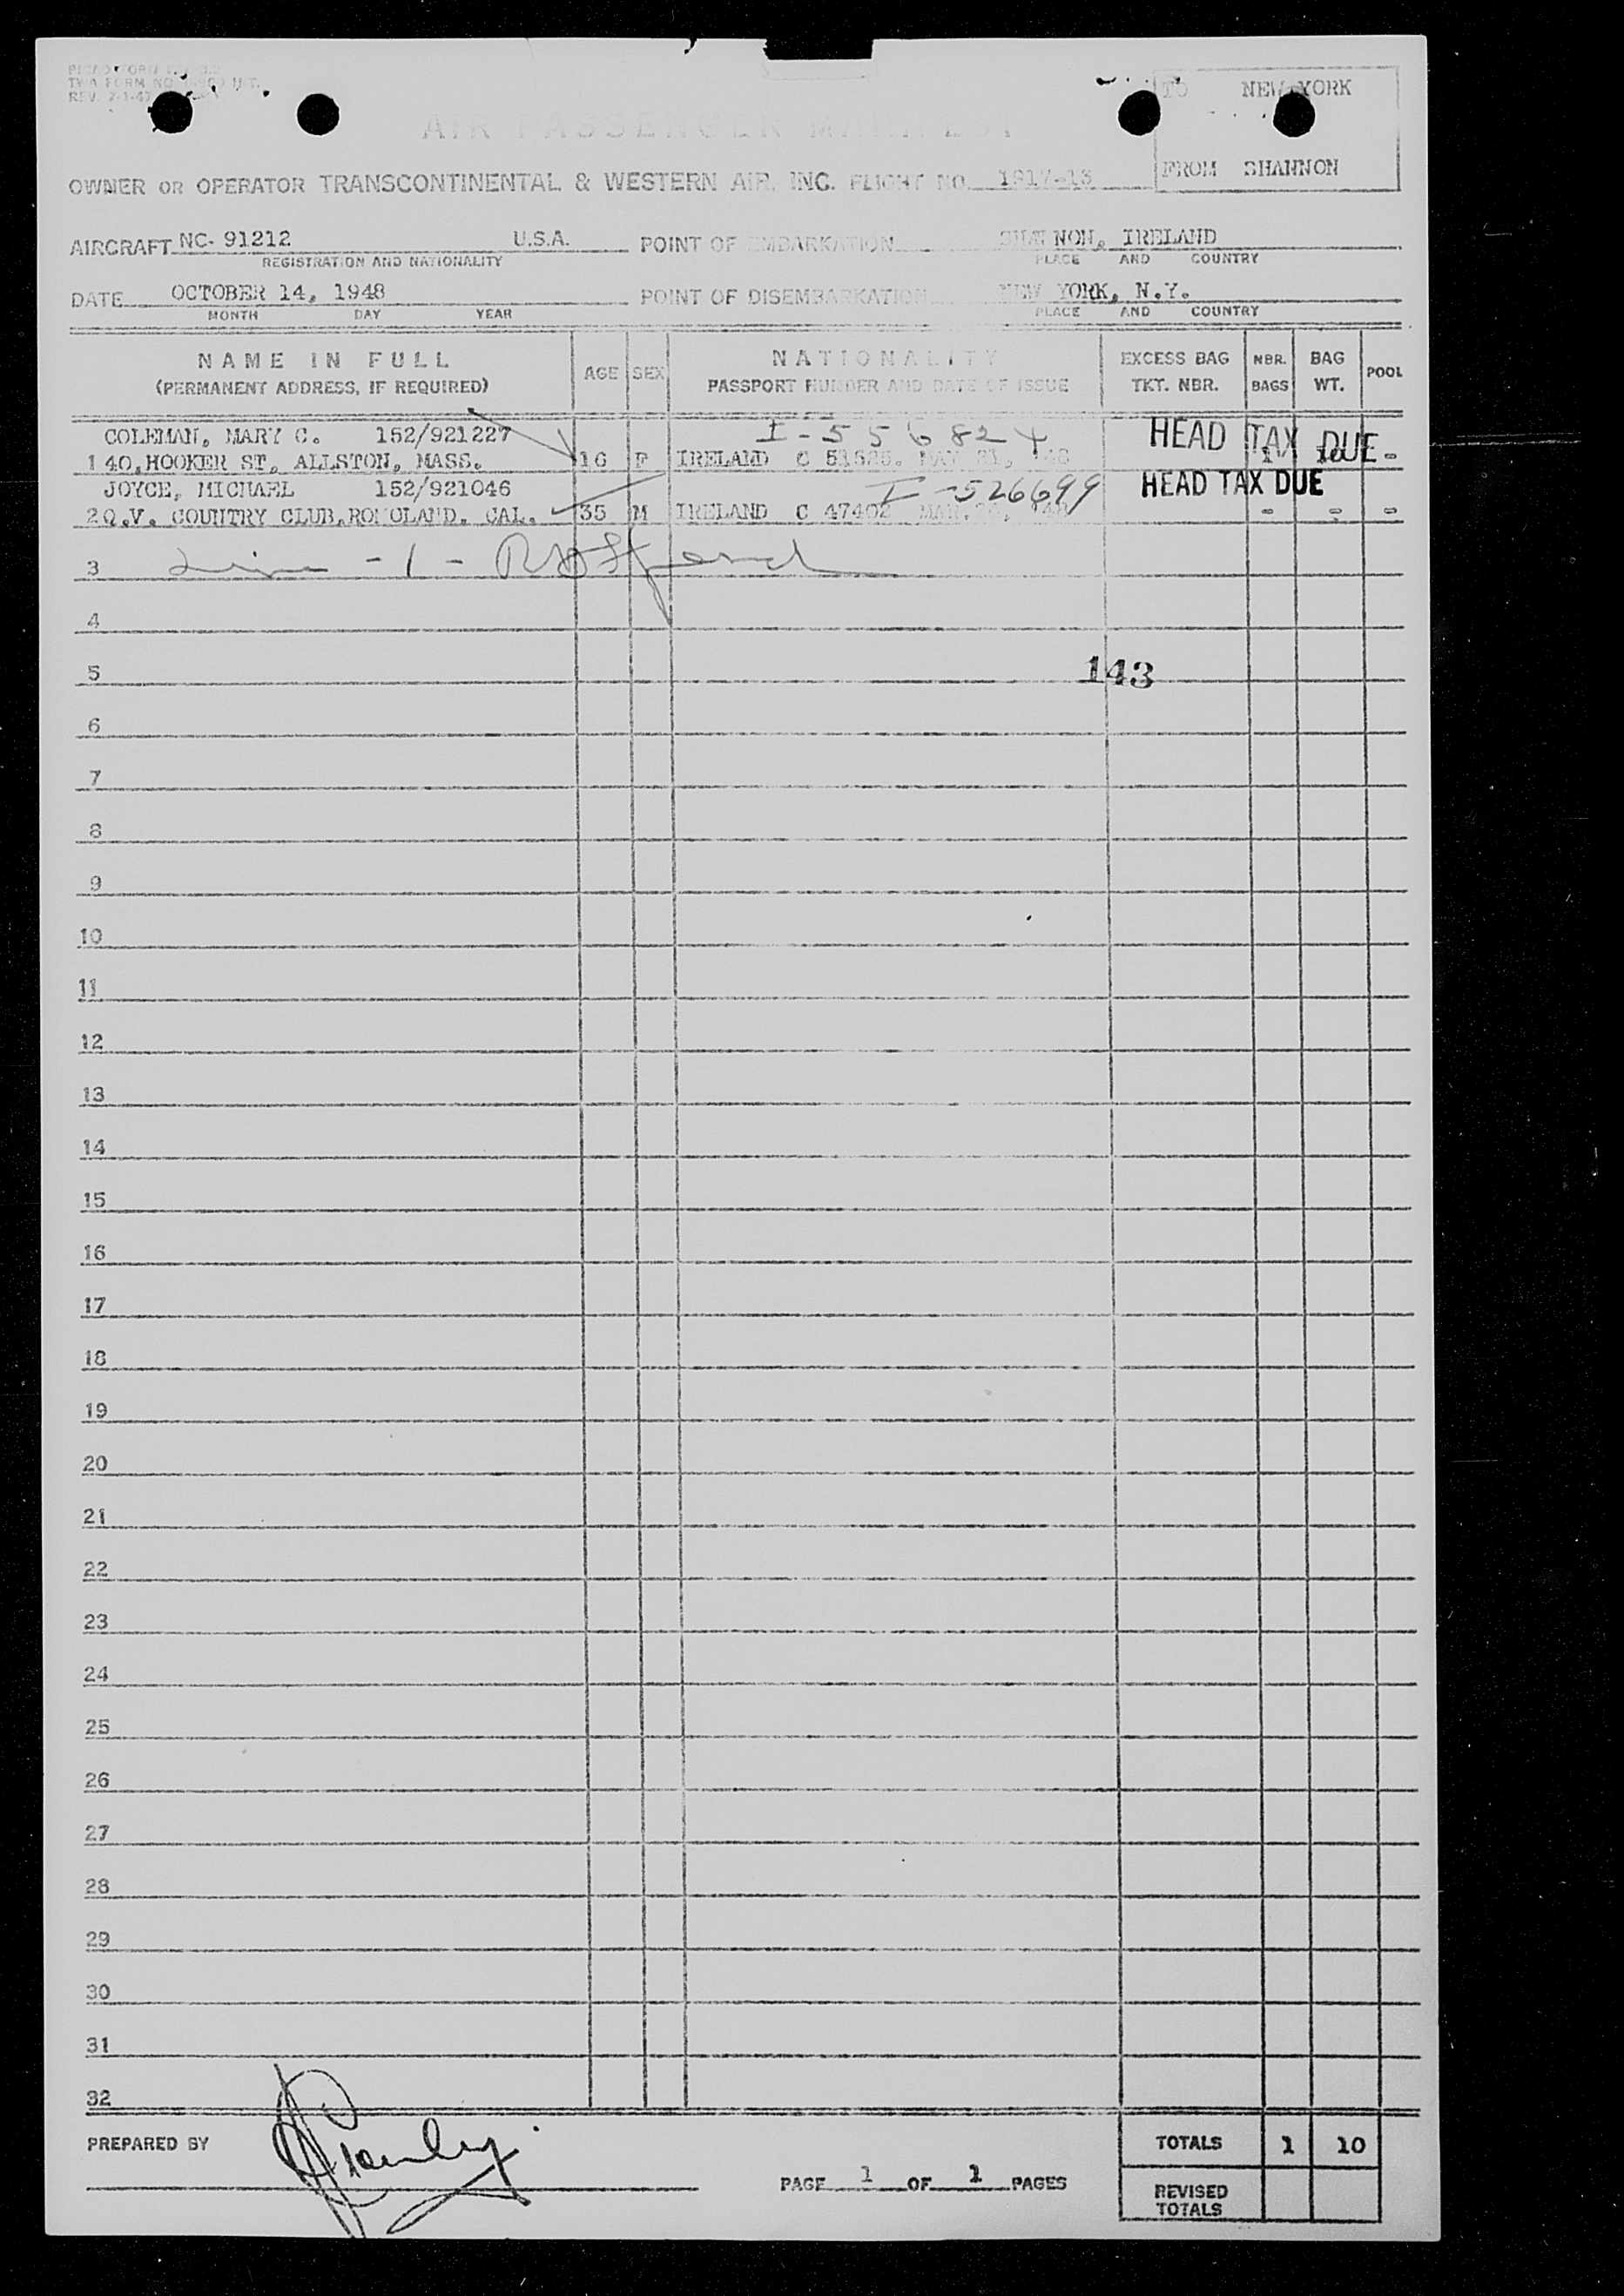 TWA FORM NO
REV. 7-1-47
TO NEW YORK
AIR PASSENGER MANIFEST
FROM SHANNON
OWNER OR OPERATOR TRANSCONTINENTAL & WESTERN AIR, INC. FLIGHT NO. 1917-13
AIRCRAFT NC- 91212 U.S.A. POINT OF EMBARKATION SHANNON, IRELAND
REGISTRATION AND NATIONALITY PLACE AND COUNTRY
DATE OCTOBER 14, 1948 POINT OF DISEMBARKATION NEW YORK, N.Y.
MONTH DAY YEAR PLACE AND COUNTRY
NAME IN FULL AGE SEX NATIONALITY EXCESS BAG NBR. BAG POOL
(PERMANENT ADDRESS, IF REQUIRED) PASSPORT NUMBER AND DATE OF ISSUE TKT. NBR. BAGS WT.
COLEMAN, MARY C. 152/921227 I-556824 HEAD TAX DUE
1 40,HOOKER ST, ALLSTON, MASS. 16 F IRELAND C MAY 21, -
JOYCE, MICHAEL 152/921046 I-526699 HEAD TAX DUE
2 Q.V. COUNTRY CLUB,ROMOLAND. CAL. 35 M IRELAND C 47402 MAR. - - -
3 Line - 1 -
4
5 143
6
7
8
9
10
11
12
13
14
15
16
17
18
19
20
21
22
23
24
25
26
27
28
29
30
31
32
PREPARED BY TOTALS 1 10
PAGE 1 OF 1 PAGES
REVISED
TOTALS